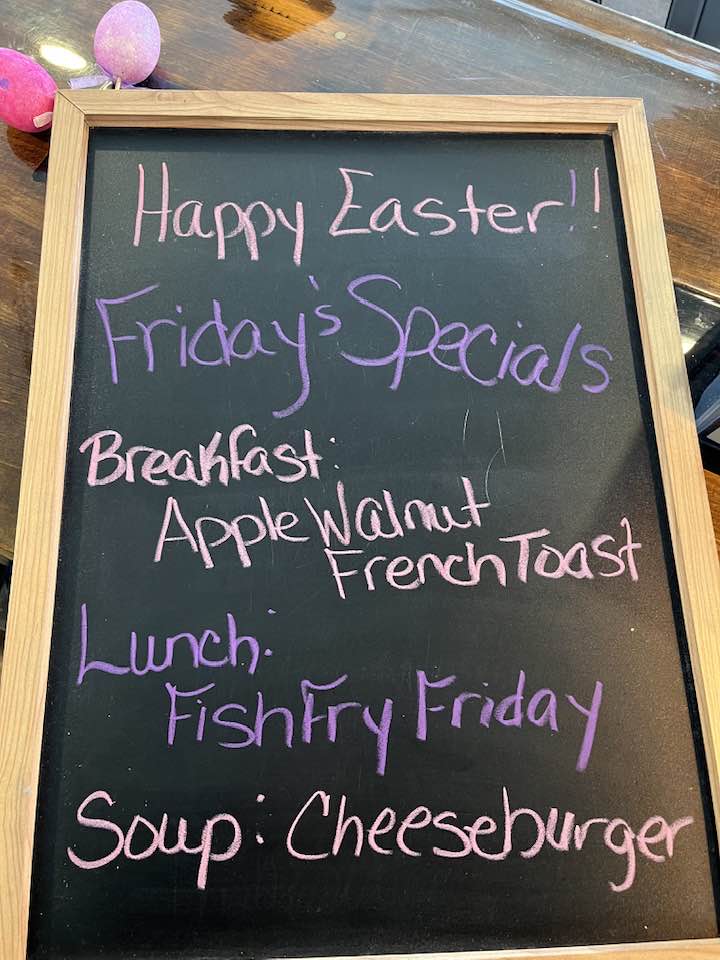 Happy Easter!!
Friday's Specials
Breakfast:
Apple Walnut
French Toast
Lunch:
Fish Fry Friday
Soup: Cheeseburger